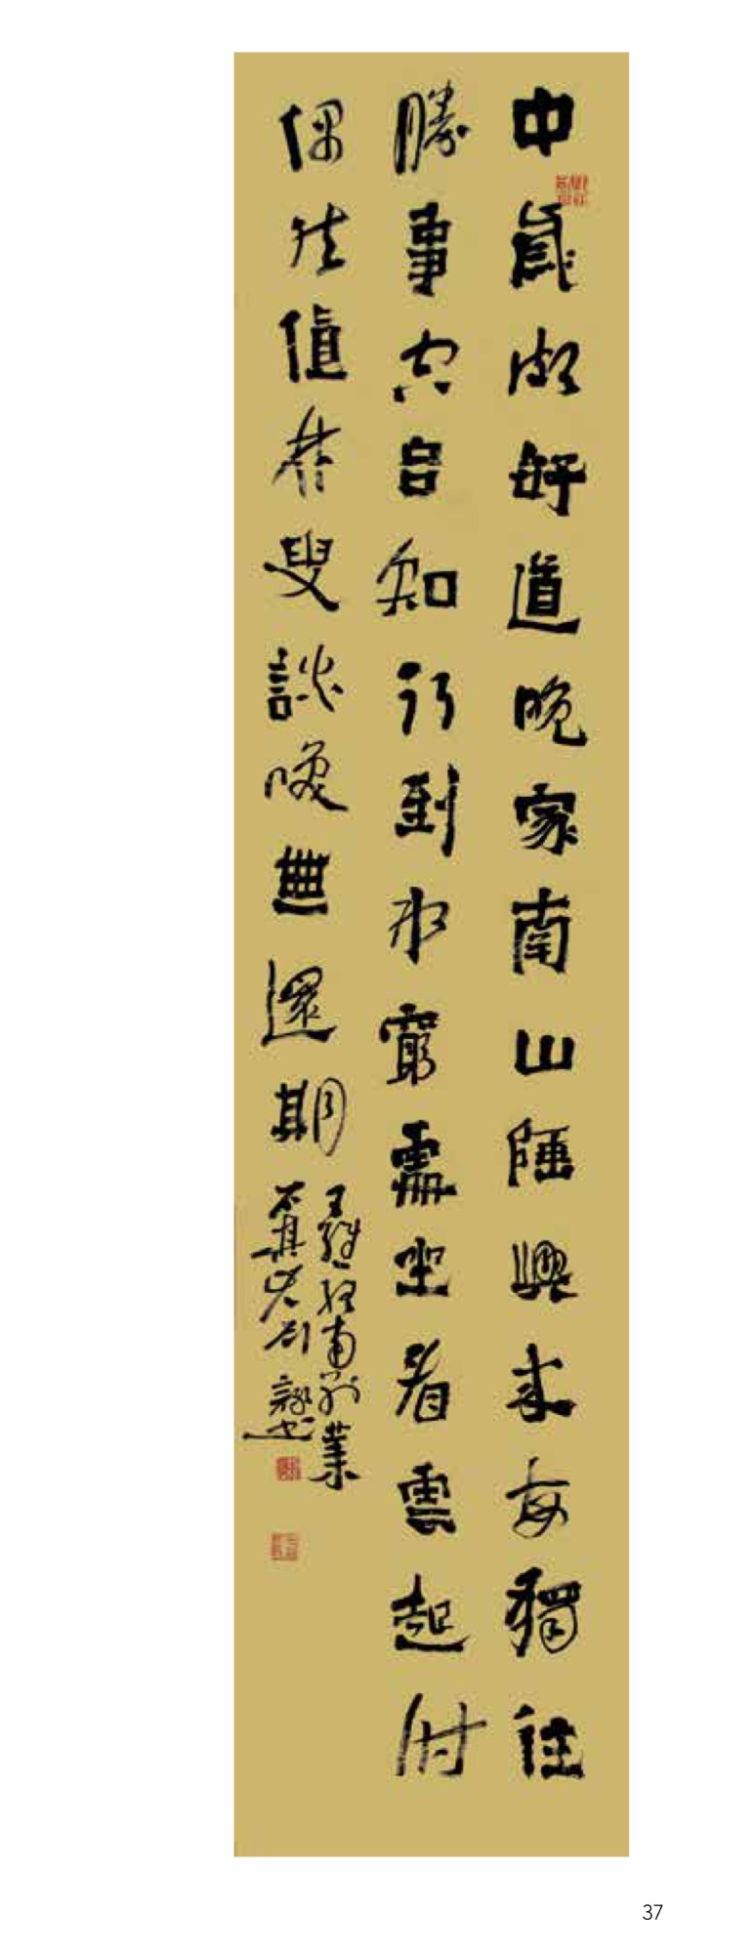 中歲頗好道晚家南山陲興來每獨往
勝事空自知行到水窮處坐看雲起時
偶然值林叟談咲無還期
王維終南別業
37